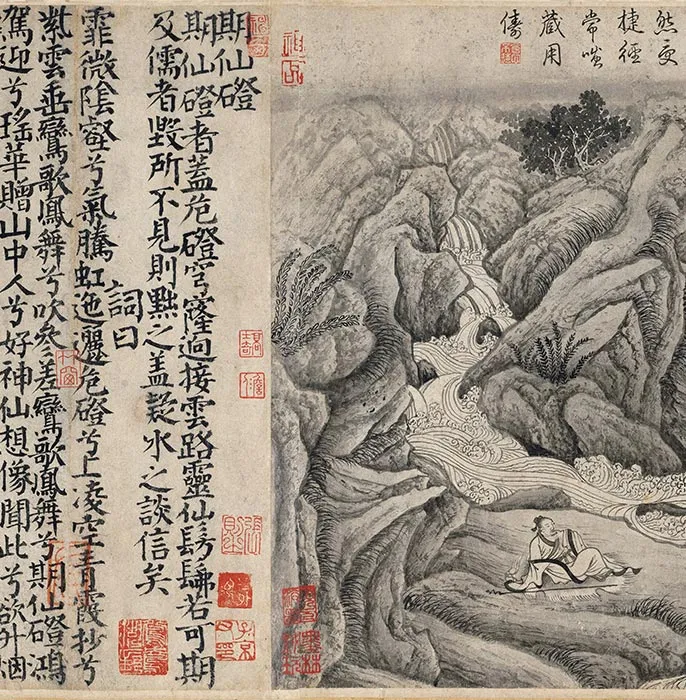 然更
捷徑
常嗤
藏用
儔
期仙磴
期仙磴者蓋危磴穹窿逈接雲路靈仙髣髴若可期
及儒者毀所不見則黜之蓋疑水之談信矣
詞曰
霏微陰壑兮氣騰虹迤邐危磴兮上凌空青霞杪兮
紫雲垂鸞歌鳳舞兮吹參差鸞歌鳳舞兮期仙磴鴻
駕迎兮瑤華贈山中人兮好神仙想像聞此兮欲升烟